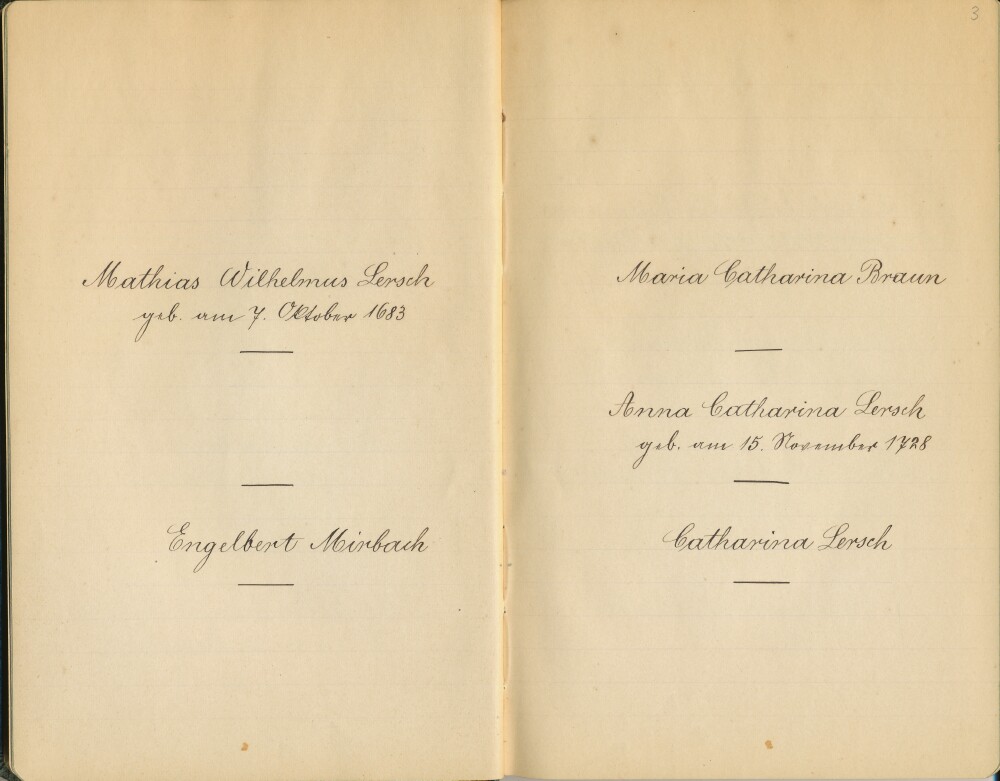 Mathias Wilhelmus Lersch
geb. am 7. Oktober 1683
Engelbert Mirbach
3
Maria Catharina Braun
Anna Catharina Lersch
geb. am 15. November 1728
Catharina Lersch